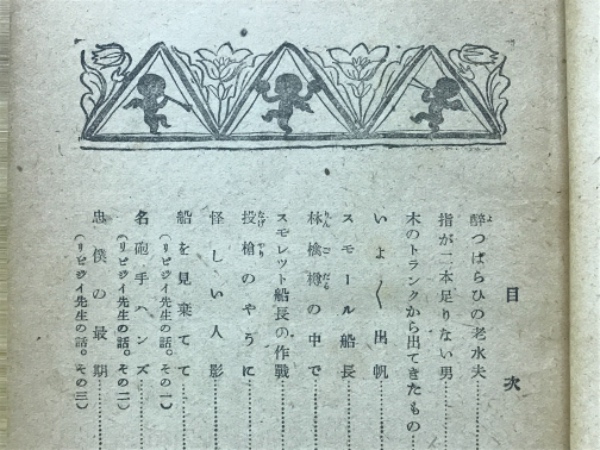 目次
醉つぱらひの老水夫
指が二本足りない男
木のトランクから出てきたもの
いよ〱出帆
スモール船長
林檎樽の中で
スモレット船長の作戰
投槍のやうに
怪しい人影
船を見棄てて
（リビジイ先生の話。その一）
名砲手ハンズ
（リビジイ先生の話。その二）
忠僕の最期
（リビジイ先生の話。その三）